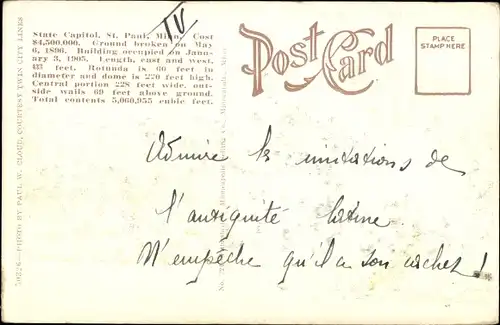 IV
State Capitol, St. Paul, Minn. Cost
$4,500,000. Ground broken on May
6, 1896. Building occupied on Janu-
ary 3, 1905. Length, east and west,
433 feet. Rotunda is 60 feet in
diameter and dome is 220 feet high.
Central portion 228 feet wide, out-
side walls 69 feet above ground.
Total contents 5,060,955 cubic feet.
Post Card
PLACE
STAMP HERE
PHOTO BY PAUL W. CLOUR, COURTESY TWIN CITY LINES
Admire les imitations de
l'antiquité latine
N'empêche qu'il a son cachet!